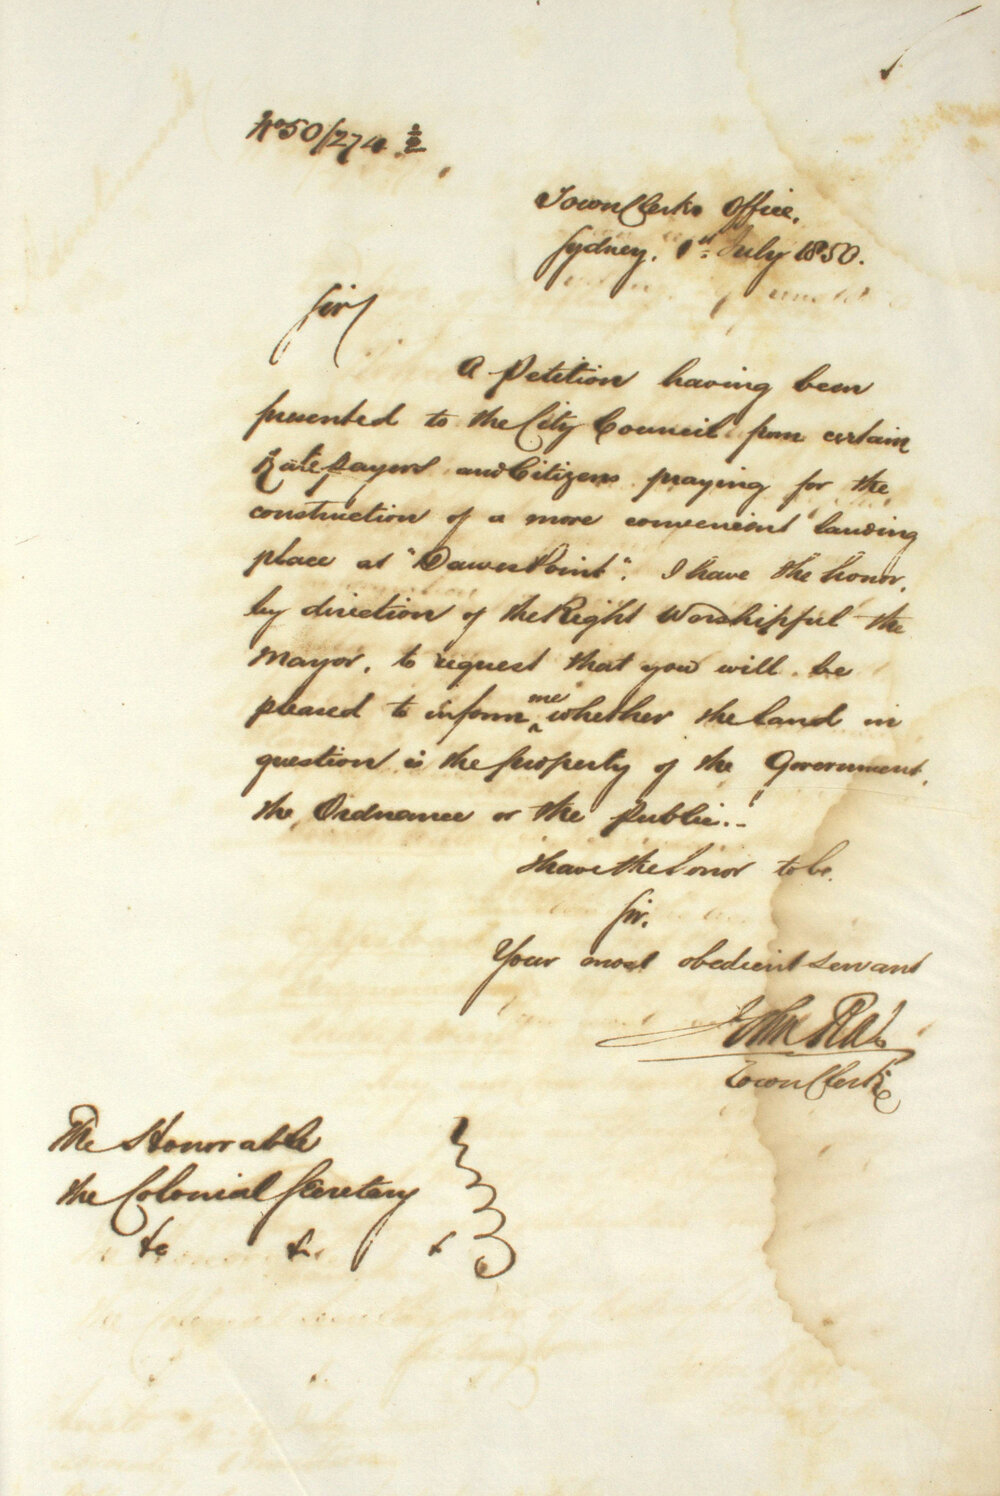 No 50/274 2/2
Town Clerks Office,
Sydney, 1st July 1850.
Sir,
A Petition having been
presented to the City Council from certain
Ratepayers and Citizens praying for the
construction of a more convenient landing
place at "Dawes Point". I have the honor,
by direction of the Right Worshipful the
Mayor, to request that you will be
pleased to inform me whether the land in
question is the property of the Government,
the Ordnance or the public.
I have the honor to be,
Sir,
Your most obedient servant
John Rae
Town Clerk
The Honorable
the Colonial Secretary
&c &c &c